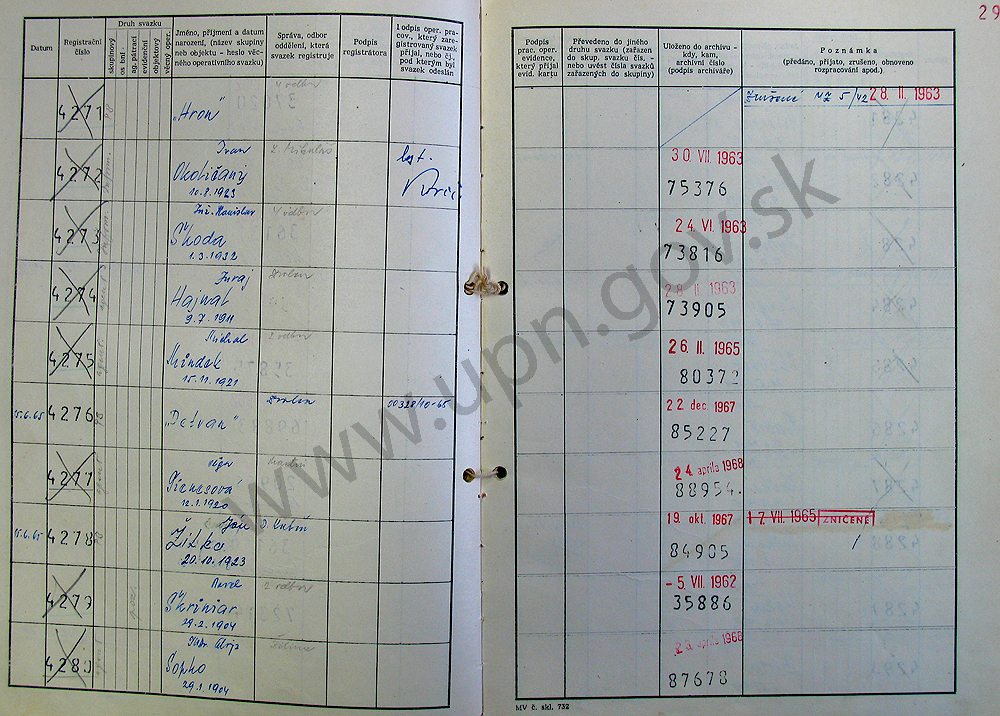 29
Datum
Registrační číslo
Druh svazku
skupinový
os bní -
ag. pátrací
evidenční
objektový
věcný oper.
Jméno, příjmení a datum
narození, (název skupiny
neb objektu - heslo věc-
ného operativního svazku)
Správa, odbor
oddělení, která
svazek registruje
Podpis
registrátora
Podpis oper. pra-
cov., který zare-
gistrovaný svazek
přijal, nebo čj.,
pod kterým byl
svazek odeslán
Podpis
prac. oper.
evidence,
který přijal
evid. kartu
Převedeno do jiného
druhu svazku (zařazen
do skup. svazku čís. -
nebo uvést čísla svazků
zařazených do skupiny)
Uloženo do archivu -
kdy, kam,
archivní číslo
(podpis archiváře)
Poznámka
(předáno, přijato, zrušeno, obnoveno
rozpracování apod.)
4271 „Hron“ 28. II. 1963
4272 Ivan
Okoličány
10.8.1923
30 VII. 1963
75376
4273 Ing. Stanislav
Škoda
1.3.1932
24. VI. 1963
73816
4274 Juraj
Hajnal
9.7.1911
28 II. 1963
73905
4275 Michal
Mindek
15.11.1921
2 odbor
26. II. 1965
80372
15.6.65 4276 „Detvan“ Zvolen 00328/10-65
22 dec. 1967
85227
4277
12.1.1920
Martin
24. apríla 1968
88954.
15.6.65 4278 Ján
Žitko
20.10.1923
D. Kubín
19. okt. 1967
84905
17. VII. 1965 ZNIČENÉ
4279 Pavel
Škriniar
29.2.1904
2 odbor
- 5. VII. 1962
35886
4280
Sopko
29.1.1904
apríla 1968
87678
MV č. skl. 732
www.upn.gov.sk